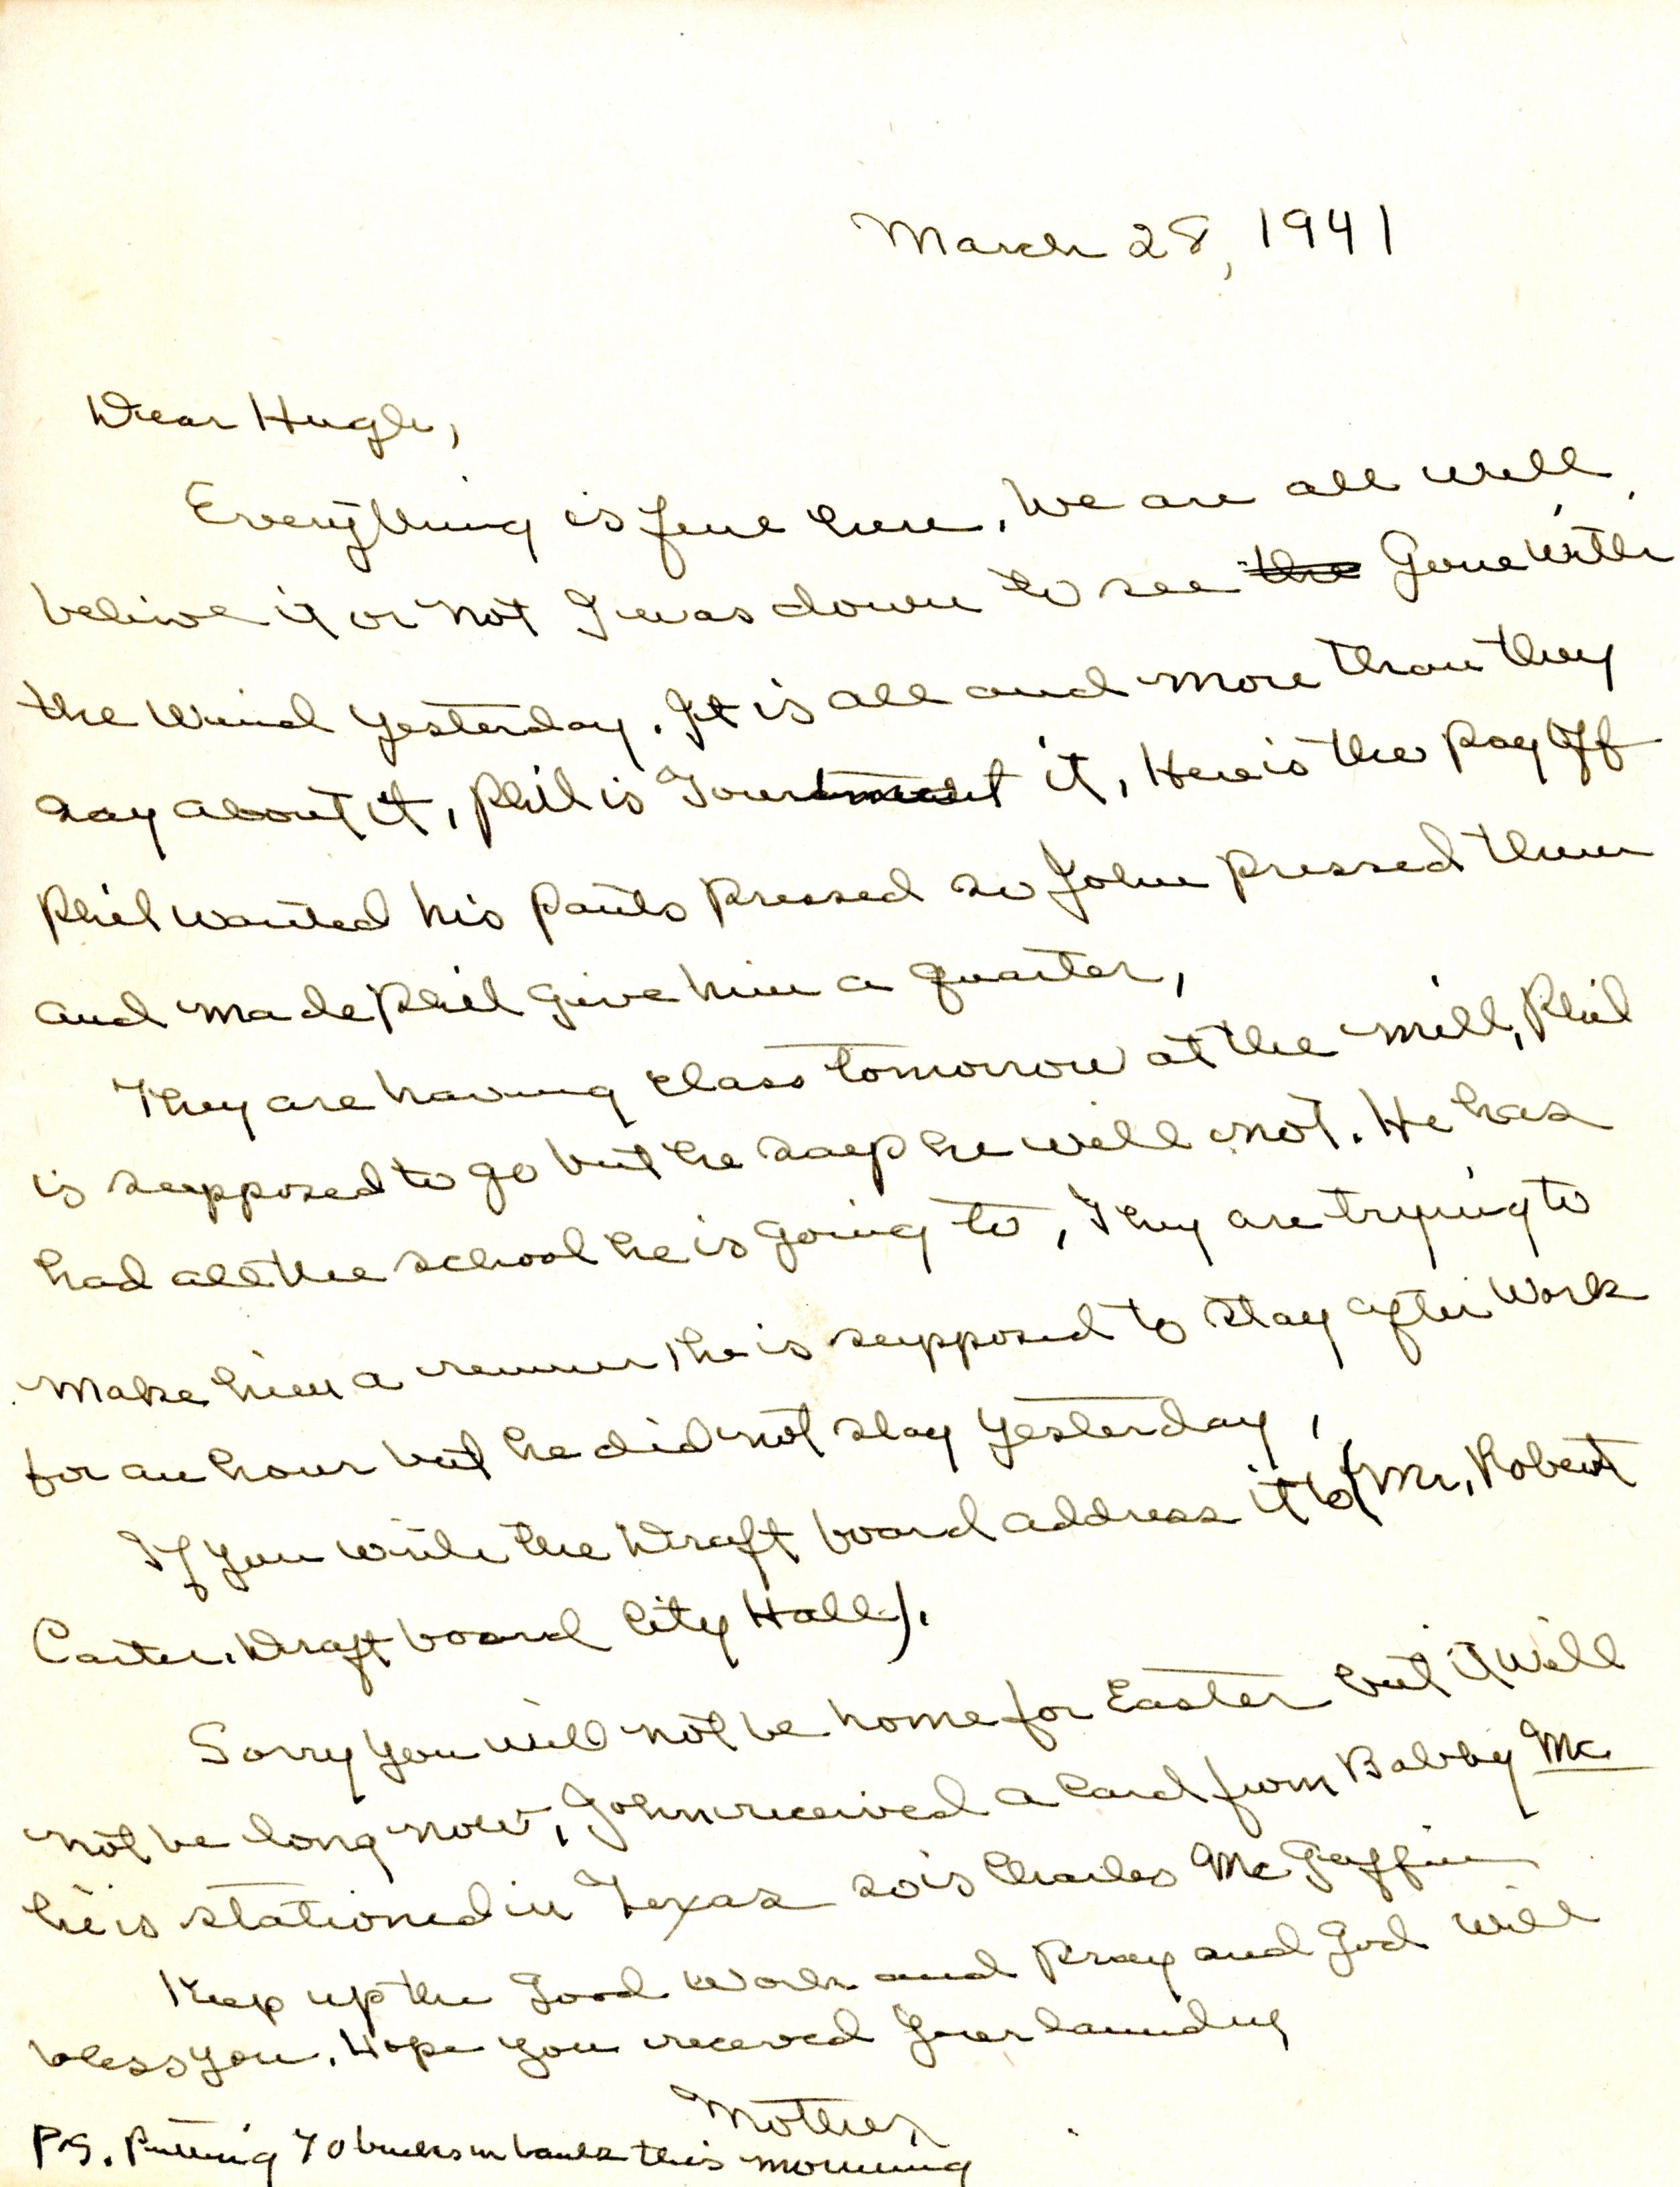 March 28, 1941
Dear Hugh,
Everything is fine here. We are all well,
belive it or not I was down to see the Gone With
the Wind yesterday. It is all and more than they
say about it, Phil is it, Here is the pay off
Phil wanted his pants pressed so John pressed them
and made Phil give him a quarter,
They are having class tomorrow at the mill, Phil
is supposed to go but he says he will not. He has
had all the school he is going to, They are trying to
make him a he is supposed to stay after work
for an hour but he did not stay yesterday,
If you write the Draft board address it to (Mr, Robert
Carter. Draft board City Hall).
Sorry you will not be home for Easter but it will
not be long now, John received a card from Bobby Mc
he is stationed in Texas so is Charles Mc Guffin
Keep up the good work and pray and God will
bless you. Hope you receved your laundry
Mother,
P.S. Putting 70 bucks in bank this morning